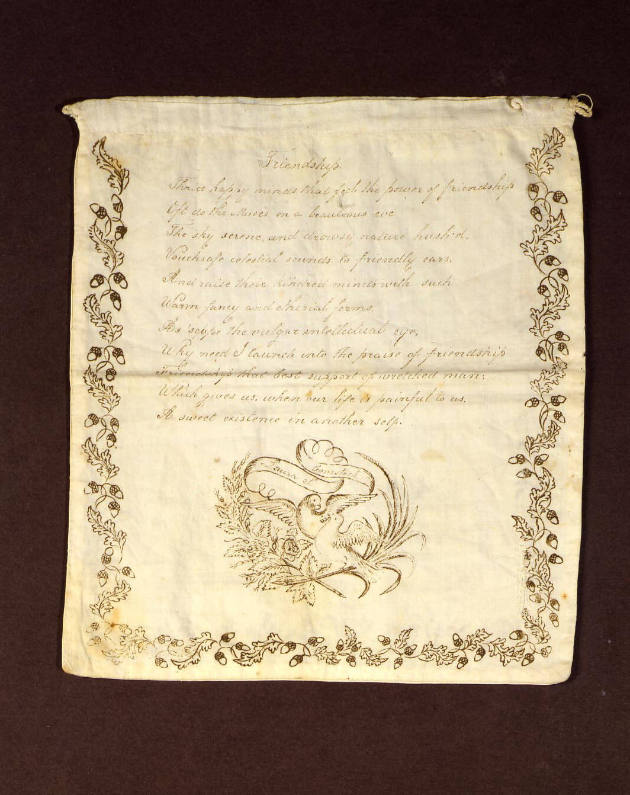 Friendship
Thrice happy minds that feel the power of friendship
Oft do the Muses on a beauteous eve
The sky serene, and drowsy nature hush'd,
Vouchsafe celestial sounds to friendly ears,
And raise their kindred minds with such
Warm fancy and etherial forms,
As 'scape the vulgar intellectual eye,
Why need I launch into the praise of friendship
Friendship that best support of wretched man;
Which gives us, when our life is painful to us,
A sweet existence in another self.
Laura